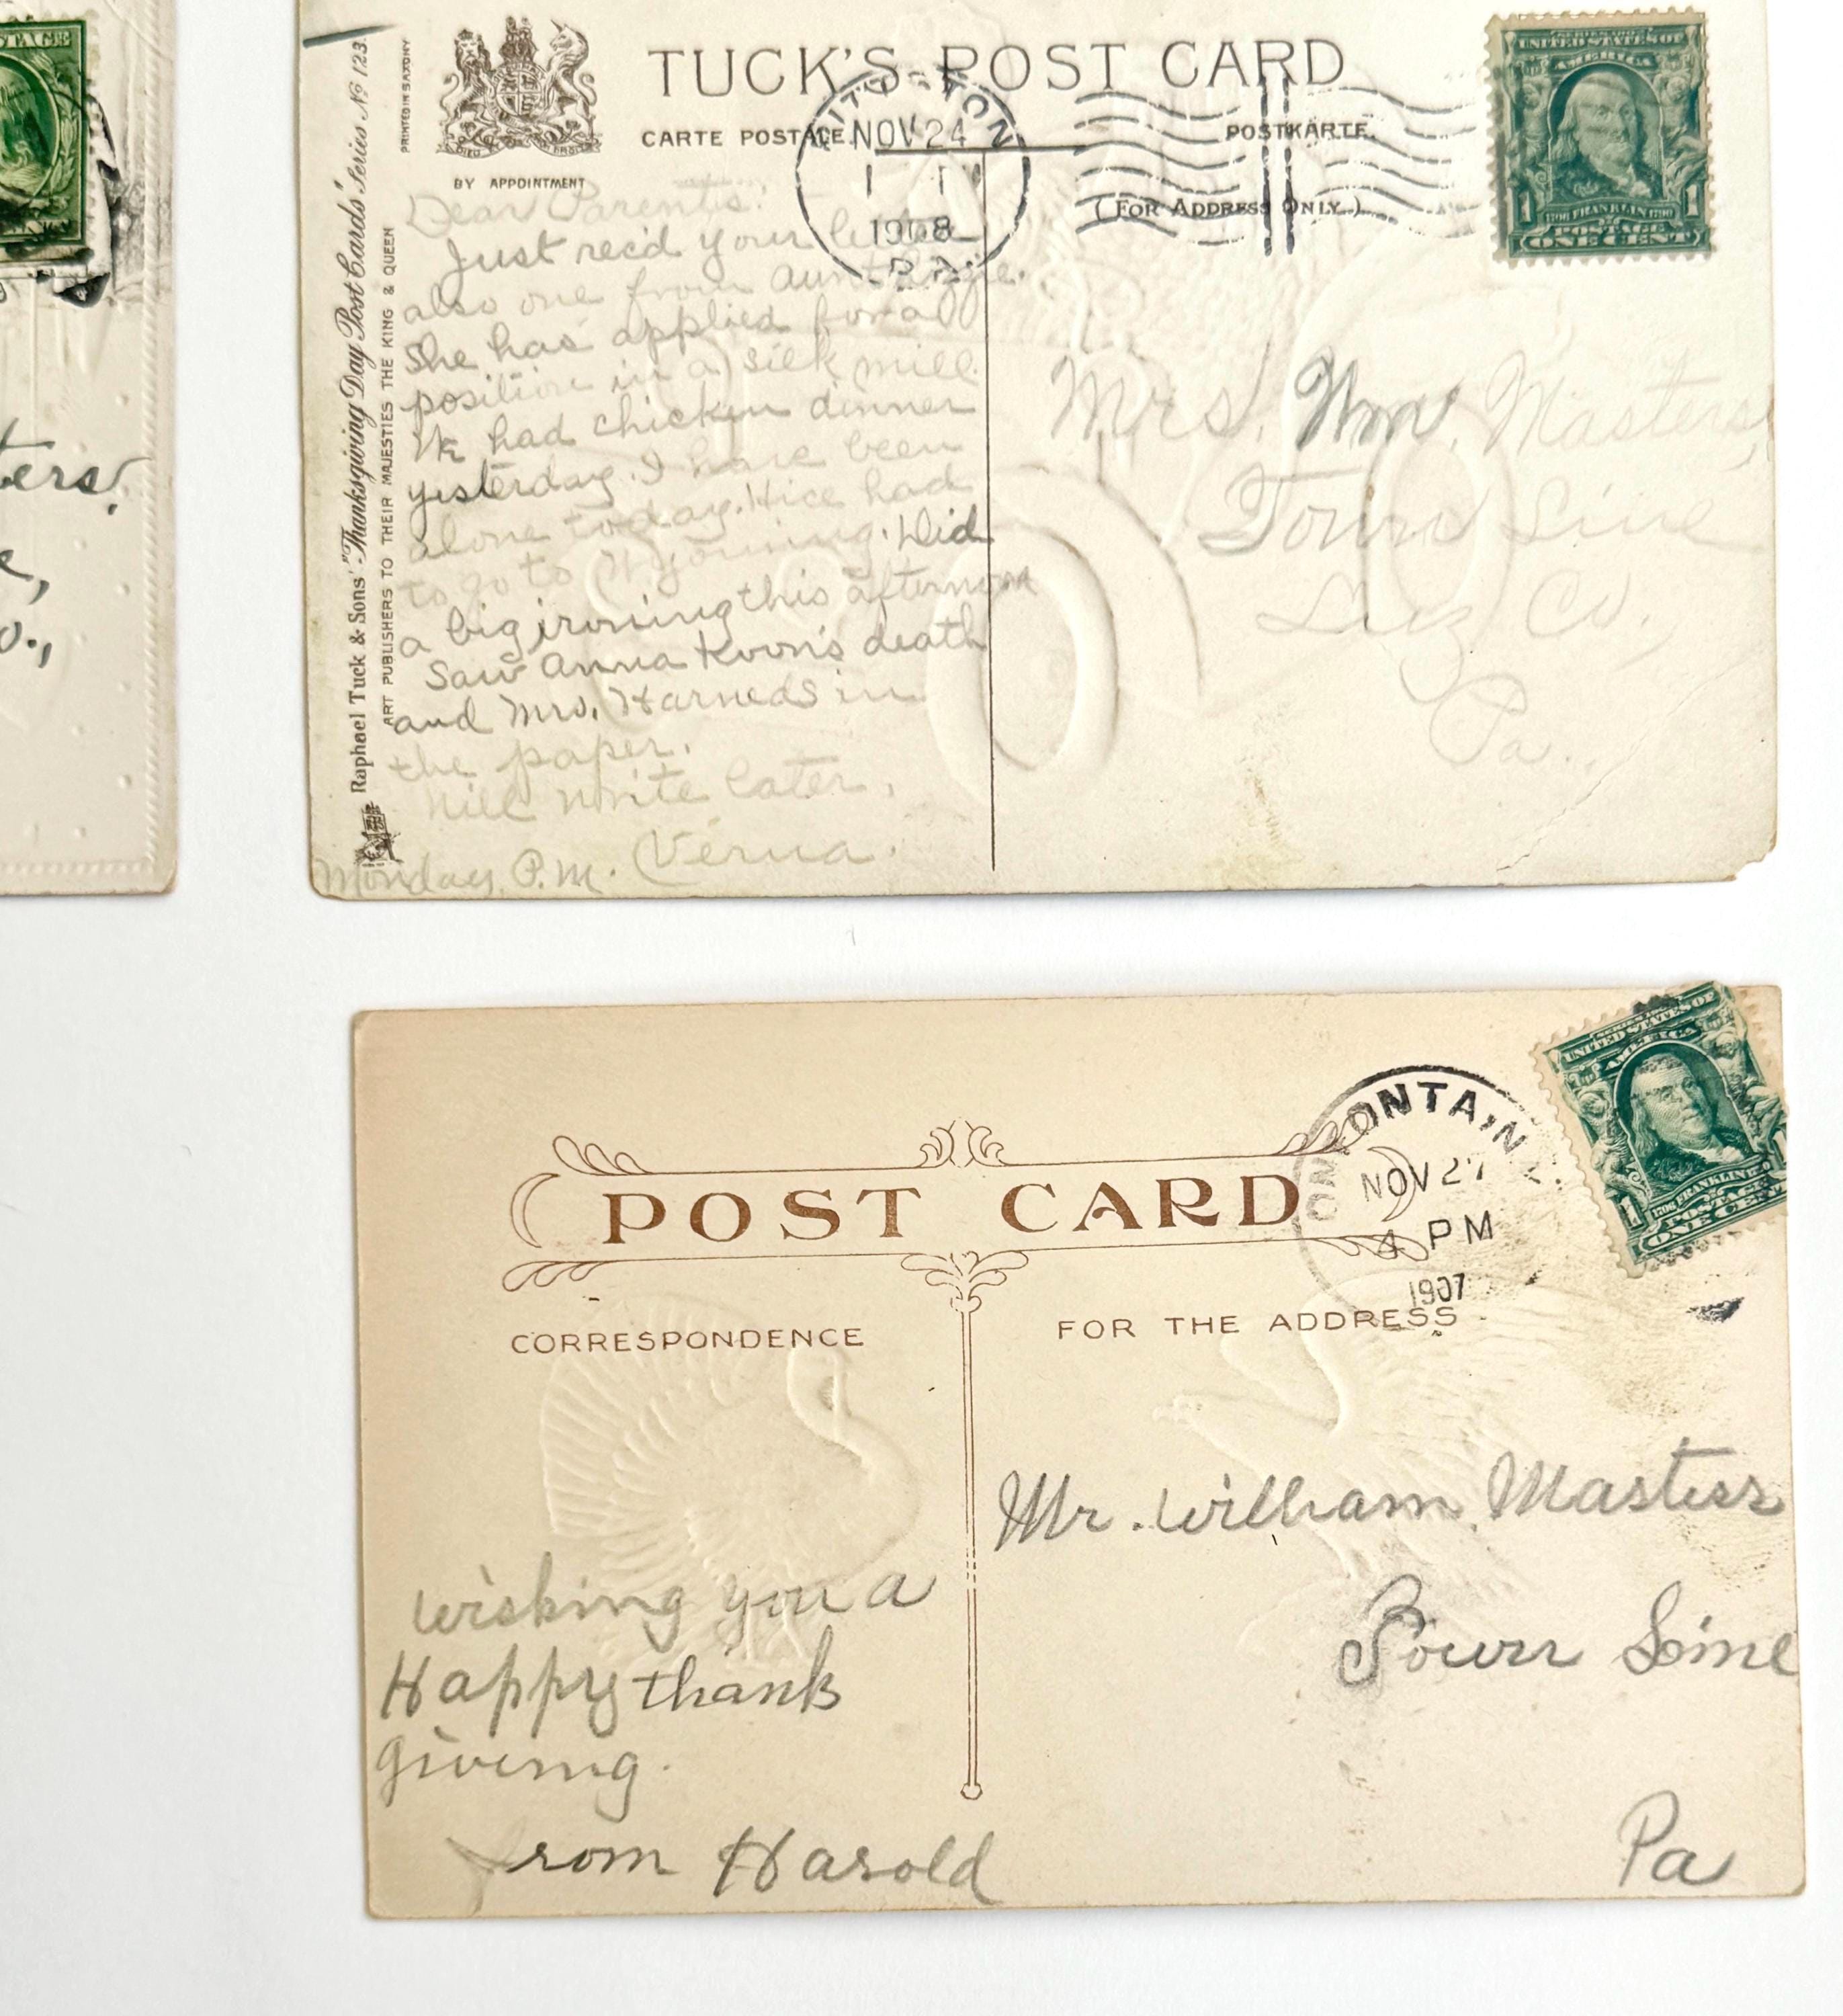 STAGE
ters.
e,
o.,
TUCK'S POST CARD
CARTE POSTALE.
POSTKARTE.
(FOR ADDRESS ONLY.)
BY APPOINTMENT
PRINTED IN SAXONY
Raphael Tuck & Sons' "Thanksgiving Day Post Cards" Series No 123.
ART PUBLISHERS TO THEIR MAJESTIES THE KING & QUEEN
TON
NOV 24
1908
PA.
UNITED STATES OF
AMERICA
1706 FRANKLIN 1790
1 1
POSTAGE
ONE CENT
Dear Parents:
Just rec'd your letter
also one from Aunt
She has applied for a
position in a silk mill.
We had chicken dinner
yesterday. I have been
alone today. Hice had
to go to Wyoming. Did
a big ironing this afternoon
Saw Anna Koon's death
and Mrs. Harneds in
the paper.
Will write later,
Verna.
Monday P.M.
Mrs. Wm. Masters,
Town Line
Luz Co.
Pa.
POST CARD
CORRESPONDENCE
FOR THE ADDRESS
ONTAIN
NOV 27
4 PM
1907
UNITED STATES OF
AMERICA
1706 FRANKLIN
1 1
POSTAGE
ONE CENT
Wishing you a
Happy thank
giveing.
from Harold
Mr. William Masters
Town Line
Pa